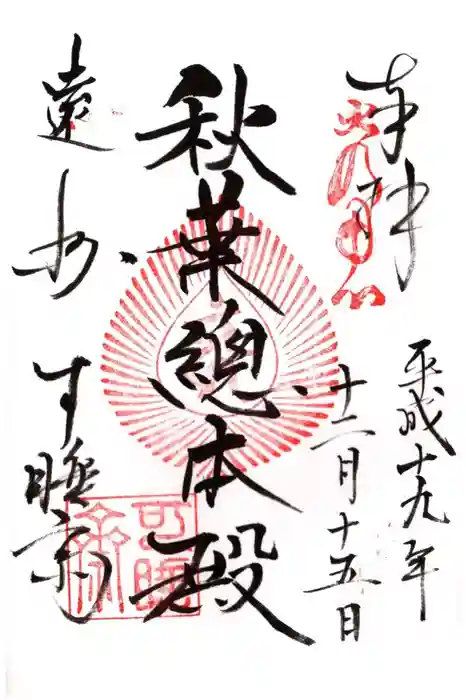 奉拝
平成十九年
十二月十五日
秋葉總本殿
遠州
可睡斎
可睡斎